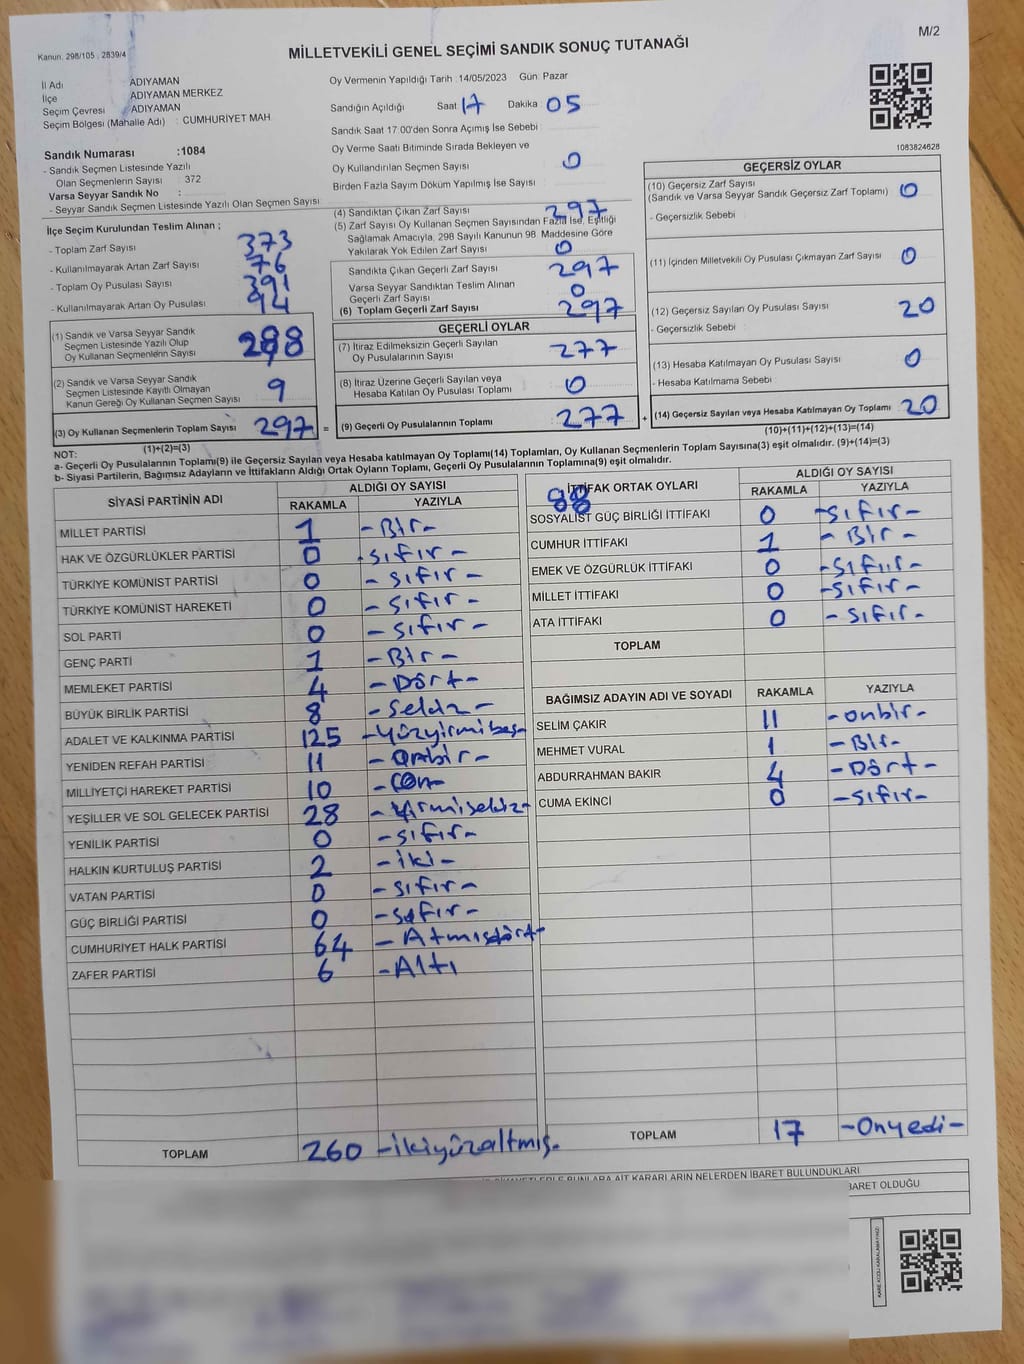 M/2
Kanun. 298/105 , 2839/4
MİLLETVEKİLİ GENEL SEÇİMİ SANDIK SONUÇ TUTANAĞI
İl Adı ADIYAMAN
İlçe ADIYAMAN MERKEZ
Seçim Çevresi ADIYAMAN
Seçim Bölgesi (Mahalle Adı) : CUMHURİYET MAH
Sandık Numarası :1084
- Sandık Seçmen Listesinde Yazılı
Olan Seçmenlerin Sayısı : 372
Varsa Seyyar Sandık No :
- Seyyar Sandık Seçmen Listesinde Yazılı Olan Seçmen Sayısı
Oy Vermenin Yapıldığı Tarih :14/05/2023 Gün: Pazar
Sandığın Açıldığı Saat 17 Dakika : 05
Sandık Saat 17 00'den Sonra Açımış İse Sebebi
Oy Verme Saati Bitiminde Sırada Bekleyen ve
Oy Kullandırılan Seçmen Sayısı 0
Birden Fazla Sayım Döküm Yapılmış İse Sayısı
1083824628
İlçe Seçim Kurulundan Teslim Alınan ;
- Toplam Zarf Sayısı 373
- Kullanılmayarak Artan Zarf Sayısı 76
- Toplam Oy Pusulası Sayısı 391
- Kullanılmayarak Artan Oy Pusulası 94
(1) Sandık ve Varsa Seyyar Sandık
Seçmen Listesinde Yazılı Olup
Oy Kullanan Seçmenlerin Sayısı 288
(2) Sandık ve Varsa Seyyar Sandık
Seçmen Listesinde Kayıtlı Olmayan
Kanun Gereği Oy Kullanan Seçmen Sayısı 9
(3) Oy Kullanan Seçmenlerin Toplam Sayısı 297
(1)+(2)=(3)
(4) Sandıktan Çıkan Zarf Sayısı 297
(5) Zarf Sayısı Oy Kullanan Seçmen Sayısından Fazla İse, Eşitliği
Sağlamak Amacıyla, 298 Sayılı Kanunun 98. Maddesine Göre
Yakılarak Yok Edilen Zarf Sayısı 0
Sandıkta Çıkan Geçerli Zarf Sayısı 297
Varsa Seyyar Sandıktan Teslim Alınan
Geçerli Zarf Sayısı 0
(6) Toplam Geçerli Zarf Sayısı 297
GEÇERLİ OYLAR
(7) İtiraz Edilmeksizin Geçerli Sayılan
Oy Pusulalarının Sayısı 277
(8) İtiraz Üzerine Geçerli Sayılan veya
Hesaba Katılan Oy Pusulası Toplamı 0
= (9) Geçerli Oy Pusulalarının Toplamı 277 +
GEÇERSİZ OYLAR
(10) Geçersiz Zarf Sayısı
(Sandık ve Varsa Seyyar Sandık Geçersiz Zarf Toplamı) 0
- Geçersizlik Sebebi
(11) İçinden Milletvekili Oy Pusulası Çıkmayan Zarf Sayısı 0
(12) Geçersiz Sayılan Oy Pusulası Sayısı 20
- Geçersizlik Sebebi :
(13) Hesaba Katılmayan Oy Pusulası Sayısı 0
- Hesaba Katılmama Sebebi :
(14) Geçersiz Sayılan veya Hesaba Katılmayan Oy Toplamı : 20
(10)+(11)+(12)+(13)=(14)
NOT:
a- Geçerli Oy Pusulalarının Toplamı(9) ile Geçersiz Sayılan veya Hesaba katılmayan Oy Toplamı(14) Toplamları, Oy Kullanan Seçmenlerin Toplam Sayısına(3) eşit olmalıdır. (9)+(14)=(3)
b- Siyasi Partilerin, Bağımsız Adayların ve İttifakların Aldığı Ortak Oyların Toplamı, Geçerli Oy Pusulalarının Toplamına(9) eşit olmalıdır.
SİYASİ PARTİNİN ADI ALDIĞI OY SAYISI
RAKAMLA YAZIYLA
MİLLET PARTİSİ 1 -Bir-
HAK VE ÖZGÜRLÜKLER PARTİSİ 0 -sıfır-
TÜRKİYE KOMÜNİST PARTİSİ 0 -sıfır-
TÜRKİYE KOMÜNİST HAREKETİ 0 -sıfır-
SOL PARTİ 0 -sıfır-
GENÇ PARTİ 1 -Bir-
MEMLEKET PARTİSİ 4 -Dört-
BÜYÜK BİRLİK PARTİSİ 8 -Sekiz-
ADALET VE KALKINMA PARTİSİ 125 -Yüzyirmibeş-
YENİDEN REFAH PARTİSİ 11 -Onbir-
MİLLİYETÇİ HAREKET PARTİSİ 10 -On-
YEŞİLLER VE SOL GELECEK PARTİSİ 28 -Yirmisekiz-
YENİLİK PARTİSİ 0 -sıfır-
HALKIN KURTULUŞ PARTİSİ 2 -iki-
VATAN PARTİSİ 0 -sıfır-
GÜÇ BİRLİĞİ PARTİSİ 0 -sıfır-
CUMHURİYET HALK PARTİSİ 64 -Atmışdört-
ZAFER PARTİSİ 6 -Altı
TOPLAM 260 -ikiyüzaltmış-
İTTİFAK ORTAK OYLARI ALDIĞI OY SAYISI
88
RAKAMLA YAZIYLA
SOSYALİST GÜÇ BİRLİĞİ İTTİFAKI 0 -sıfır-
CUMHUR İTTİFAKI 1 -Bir-
EMEK VE ÖZGÜRLÜK İTTİFAKI 0 -sıfır-
MİLLET İTTİFAKI 0 -sıfır-
ATA İTTİFAKI 0 -sıfır-
TOPLAM
BAĞIMSIZ ADAYIN ADI VE SOYADI RAKAMLA YAZIYLA
SELİM ÇAKIR 11 -onbir-
MEHMET VURAL 1 -Bir-
ABDURRAHMAN BAKIR 4 -Dört-
CUMA EKİNCİ 0 -sıfır-
TOPLAM 17 -Onyedi-
BUNLARA AİT KARARLARIN NELERDEN İBARET BULUNDUKLARI
İBARET OLDUĞU
KARE KODU KARALAMAYINIZ!